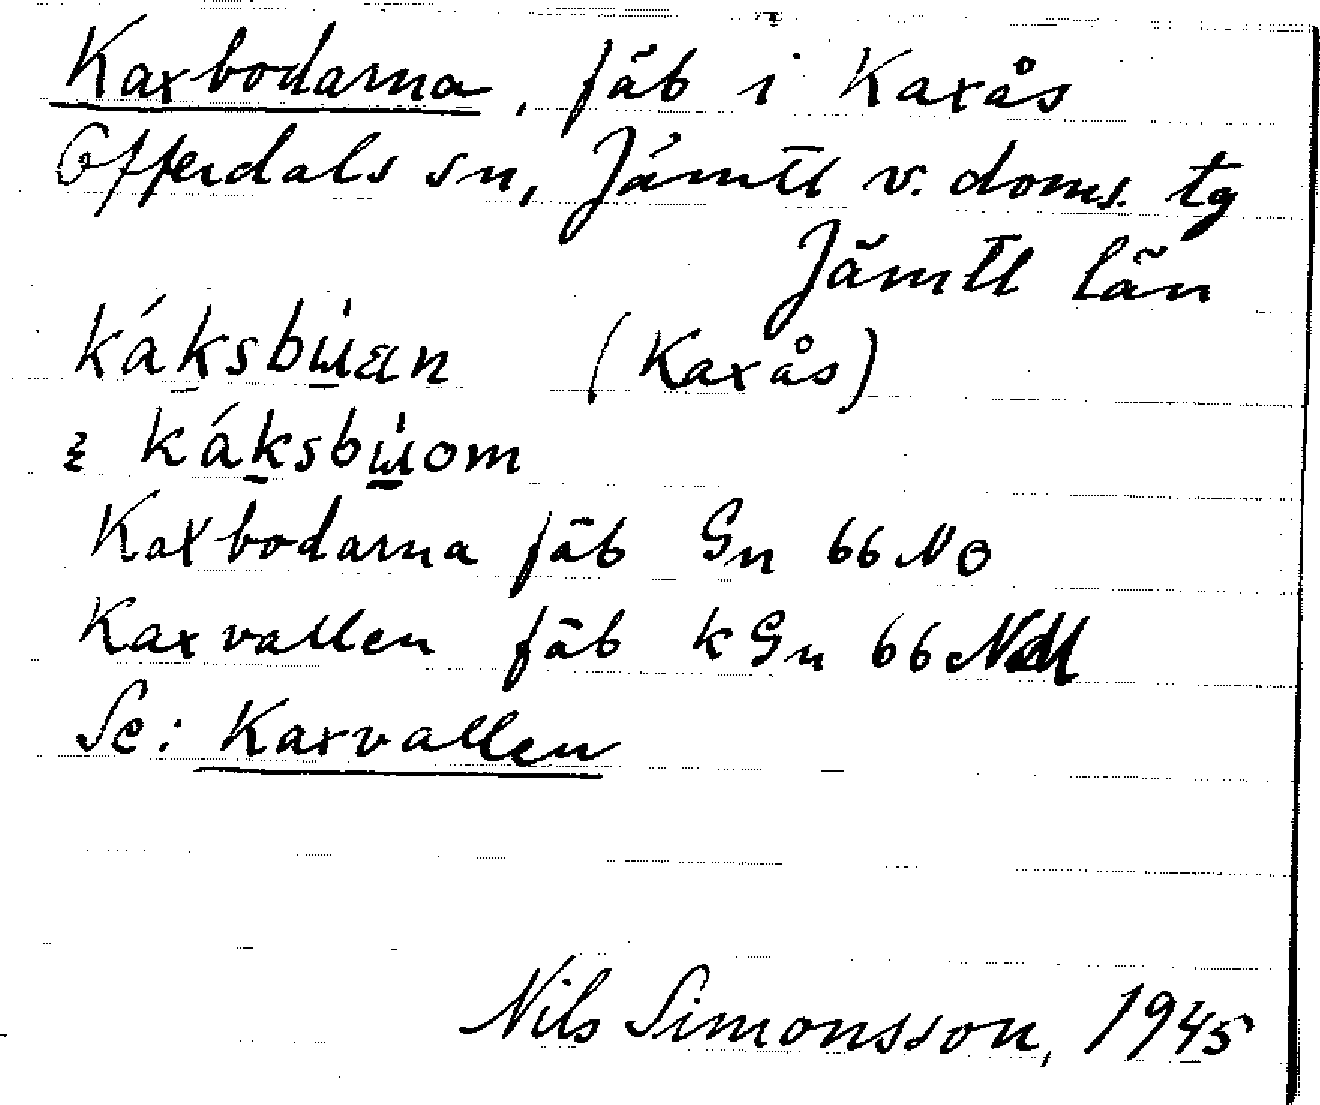 Kaxbodarna, fäb i Kaxås
Offerdals sn, Jämtl v. doms. tg
Jämtl län
káksbɯ̀an (Kaxås)
ꜫ káksbɯ̀om
Kaxbodarna fäb Gn 66 NO
Kaxvallen fäb kGn 66
Se: Kaxvallen
Nils Simonsson, 1945